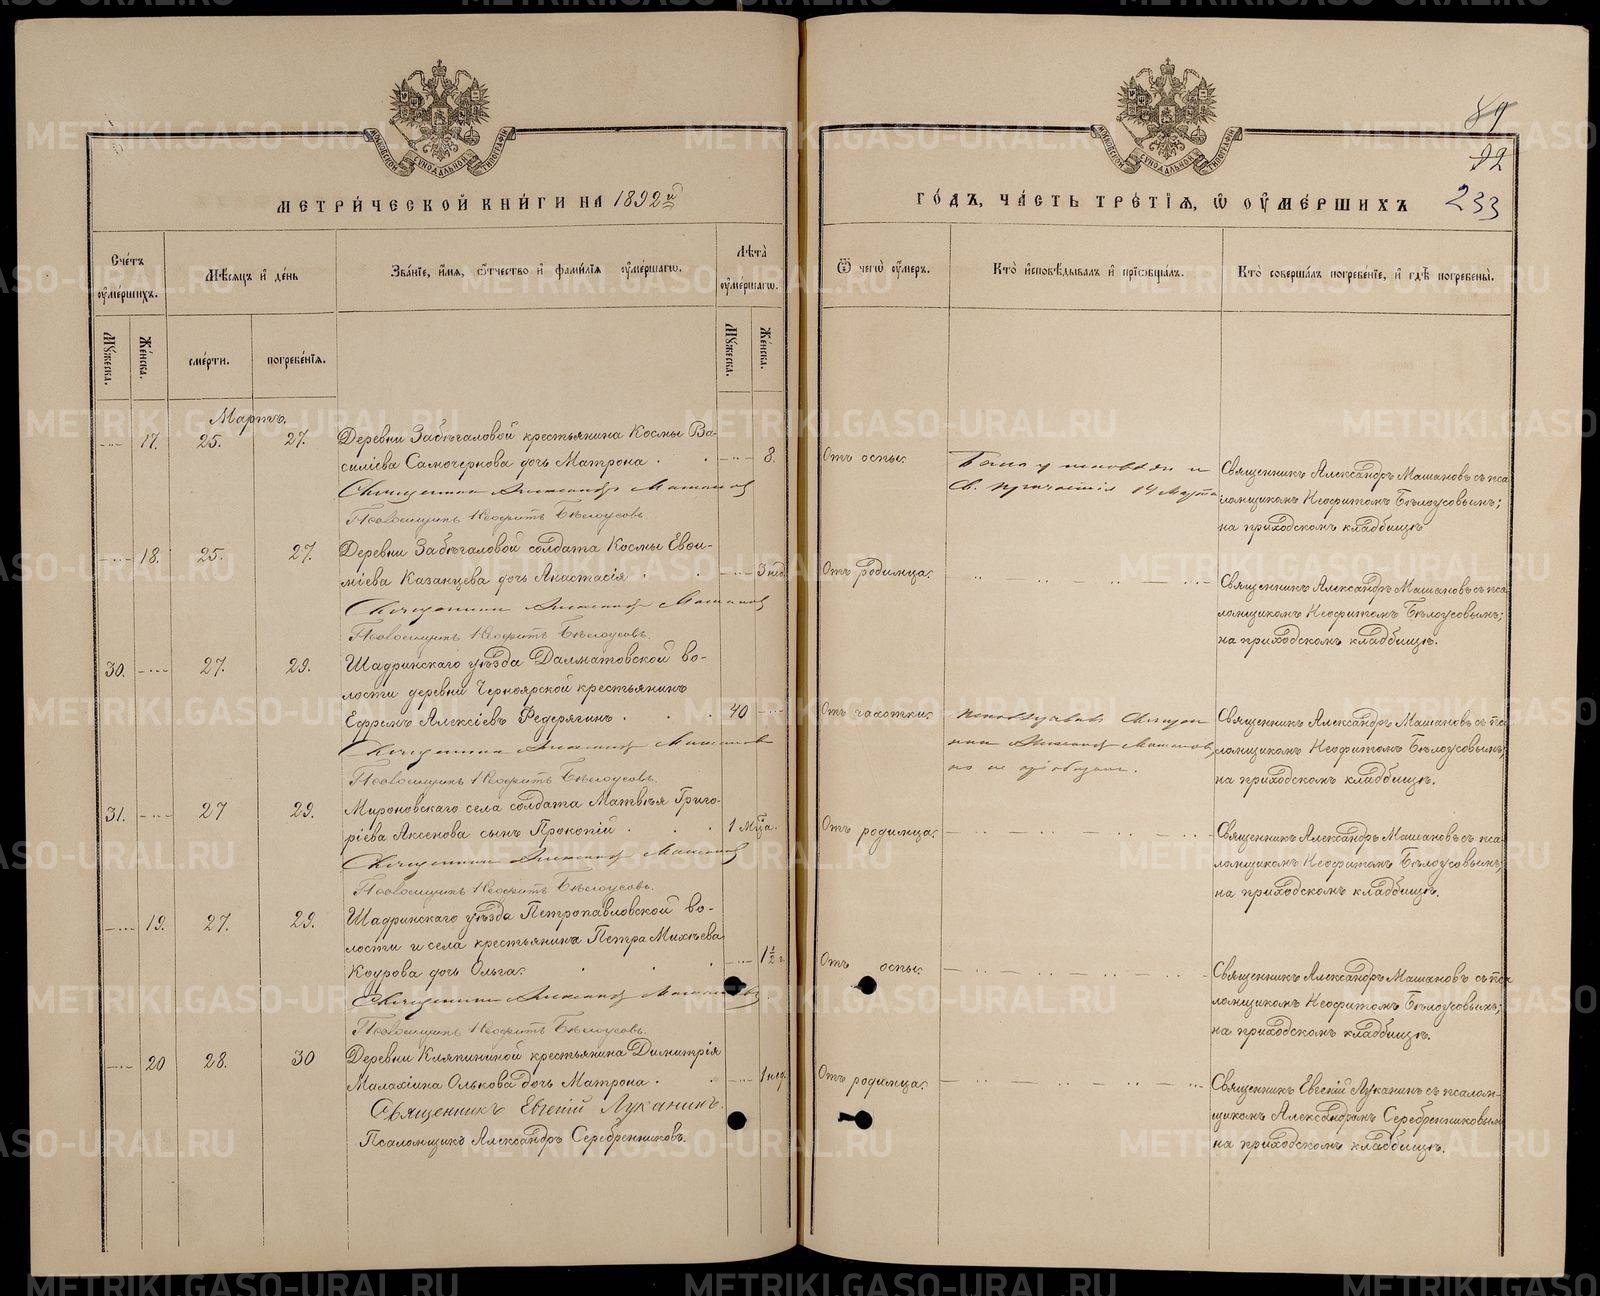 МЕТРИЧЕСКОЙ КНИГИ НА 1892й
Счетъ умершихъ.
Мѣсяцъ и день
Званіе, имя, отчество и фамилія умершаго.
Лѣта умершаго.
Мужеска.
Женска.
смерти.
погребенія.
Мужеска.
Женска.
Мартъ.
17. 25. 27. Деревни Забѣгаловой крестьянина Космы Ва-
силіева Самочернова дочь Матрона. 8.
Священникъ Александръ Машановъ
Псаломщикъ Неофитъ Бѣлоусовъ.
18. 25. 27. Деревни Забѣгаловой солдата Космы Евѳи-
міева Казанцева дочь Анастасія. 3 нед.
Священникъ Александръ Машановъ
Псаломщикъ Неофитъ Бѣлоусовъ.
30. 27. 29. Шадринскаго уѣзда Далматовской во-
лости деревни Черноярской крестьянинъ
Ефремъ Алексіевъ Федерягинъ. 40
Священникъ Александръ Машановъ
Псаломщикъ Неофитъ Бѣлоусовъ.
31. 27 29. Мироновскаго села солдата Матвѣя Григо-
ріева Аксенова сынъ Прокопій. 1 мца.
Священникъ Александръ Машановъ
Псаломщикъ Неофитъ Бѣлоусовъ.
19. 27. 29. Шадринскаго уѣзда Петропавловской во-
лости и села крестьянина Петра Михѣева
Коурова дочь Ольга. 1½ г.
Священникъ Александръ Машановъ
Псаломщикъ Неофитъ Бѣлоусовъ.
20 28. 30 Деревни Кляпининой крестьянина Димитрія
Малахіина Олькова дочь Матрона. 1 нед.
Священникъ Евгеній Луканинъ.
Псаломщикъ Александръ Серебренниковъ.
89
92
233
ГОДЪ, ЧАСТЬ ТРЕТІЯ, Ѿ УМЕРШИХЪ
Ѿ чего умеръ.
Кто исповѣдывалъ и пріобщалъ.
Кто совершалъ погребеніе, и гдѣ погребены.
Отъ оспы.
Была у исповѣди и
Св. Причастія 14 Марта
Священникъ Александръ Машановъ съ пса-
ломщикомъ Неофитомъ Бѣлоусовымъ;
на приходскомъ кладбищѣ
Отъ родимца.
Священникъ Александръ Машановъ съ пса-
ломщикомъ Неофитомъ Бѣлоусовымъ;
на приходскомъ кладбищѣ.
Отъ чахотки.
Исповѣдывалъ Священ
никъ Александръ Машановъ,
но не пріобщалъ.
Священникъ Александръ Машановъ съ пса-
ломщикомъ Неофитомъ Бѣлоусовымъ;
на приходскомъ кладбищѣ.
Отъ родимца.
Священникъ Александръ Машановъ съ пса-
ломщикомъ Неофитомъ Бѣлоусовымъ;
на приходскомъ кладбищѣ.
Отъ оспы.
Священникъ Александръ Машановъ съ пса
ломщикомъ Неофитомъ Бѣлоусовымъ;
на приходскомъ кладбищѣ.
Отъ родимца.
Священникъ Евгеній Луканинъ съ псалом-
щикомъ Александромъ Серебренниковымъ
на приходскомъ кладбищѣ.
METRIKI.GASO-URAL.RU